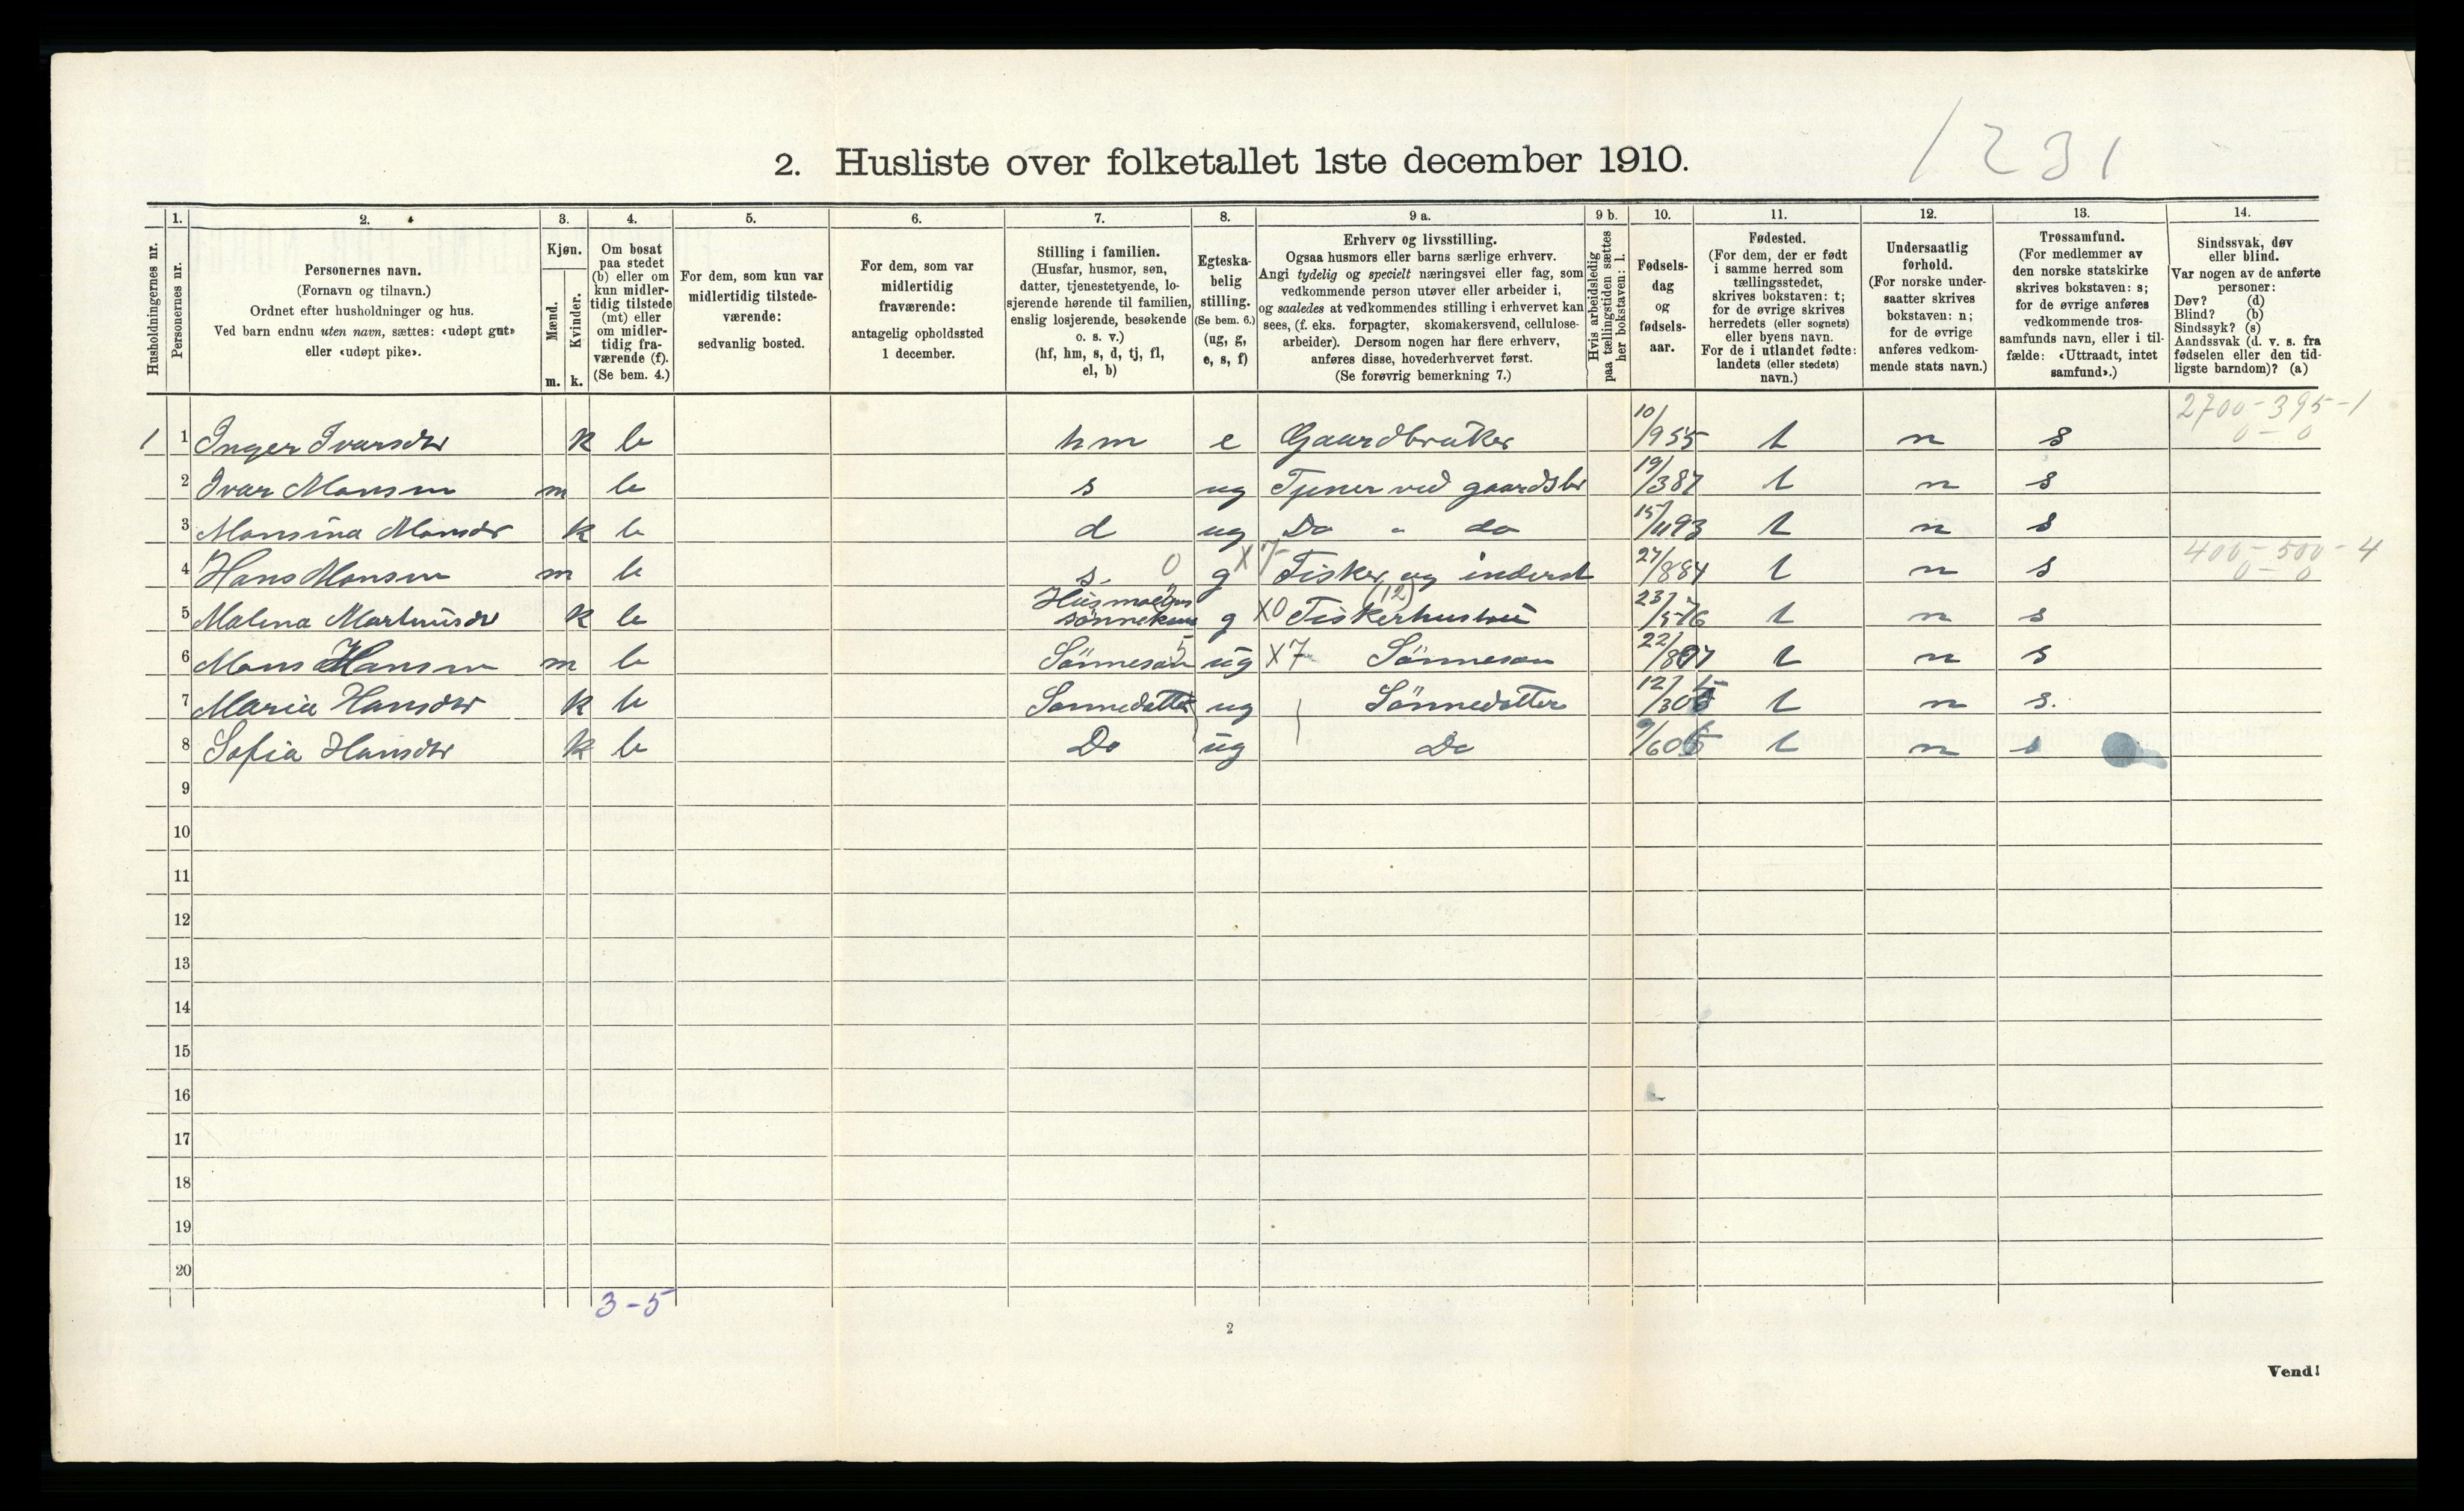 1231
2. Husliste over folketallet 1ste december 1910.
1. 2. 3. 4. 5. 6. 7. 8. 9 a. 9 b. 10. 11. 12. 13. 14.
Husholdningernes nr.
Personernes nr.
Personernes navn.
(Fornavn og tilnavn.)
Ordnet efter husholdninger og hus.
Ved barn endnu uten navn, sættes: «udøpt gut»
eller «udøpt pike».
Kjøn.
Mænd.
Kvinder.
m. k.
Om bosat
paa stedet
(b) eller om
kun midler-
tidig tilstede
(mt) eller
om midler-
tidig fra-
værende (f).
(Se bem. 4.)
For dem, som kun var
midlertidig tilstede-
værende:
sedvanlig bosted.
For dem, som var
midlertidig
fraværende:
antagelig opholdssted
1 december.
Stilling i familien.
(Husfar, husmor, søn,
datter, tjenestetyende, lo-
sjerende hørende til familien,
enslig losjerende, besøkende
o. s. v.)
(hf, hm, s, d, tj, fl,
el, b)
Egteska-
belig
stilling.
(Se bem. 6.)
(ug, g,
e, s, f)
Erhverv og livsstilling.
Ogsaa husmors eller barns særlige erhverv.
Angi tydelig og specielt næringsvei eller fag, som
vedkommende person utøver eller arbeider i,
og saaledes at vedkommendes stilling i erhvervet kan
sees, (f. eks. forpagter, skomakersvend, cellulose-
arbeider). Dersom nogen har flere erhverv,
anføres disse, hovederhvervet først.
(Se forøvrig bemerkning 7.)
Hvis arbeidsledig
paa tællingstiden sættes
her bokstaven: l.
Fødsels-
dag
og
fødsels-
aar.
Fødested.
(For dem, der er født
i samme herred som
tællingsstedet,
skrives bokstaven: t;
for de øvrige skrives
herredets (eller sognets)
eller byens navn.
For de i utlandet fødte:
landets (eller stedets)
navn.)
Undersaatlig
forhold.
(For norske under-
saatter skrives
bokstaven: n;
for de øvrige
anføres vedkom-
mende stats navn.)
Trossamfund.
(For medlemmer av
den norske statskirke
skrives bokstaven: s;
for de øvrige anføres
vedkommende tros-
samfunds navn, eller i til-
fælde: «Uttraadt, intet
samfund».)
Sindssvak, døv
eller blind.
Var nogen av de anførte
personer:
Døv? (d)
Blind? (b)
Sindssyk? (s)
Aandssvak (d. v. s. fra
fødselen eller den tid-
ligste barndom)? (a)
2700-395-1
0-0
1 1 Inger Ivarsdtr k b hm e Gaardbruker 10/9 55 t n s
2 Ivar Monsen m b s ug Tjener ved gaardsbr 19/3 87 t n s
3 Monsina Monsdr k b d ug Do " do 15/11 93 t n s
400-500-4
0-0
4 Hans Monsen m b s. 0 g X7 Fisker og inderst 27/8 84 t n s
(12)
5 Malena Martinusdr k b sønnekone g X0 Fiskerhustru 23/5 76 t n s
6 Mons Hansen m b Sönneson 5 ug X7 Sönneson 22/8 07 t n s
7 Maria Hansdtr k b Sonnedatter ug Sönnedatter 12/3 05 t n s.
8 Sofia Hansdtr k b Do ug Do 9/6 06 t n s
9
10
11
12
13
14
15
16
17
18
19
20
3-5
2
Vend!